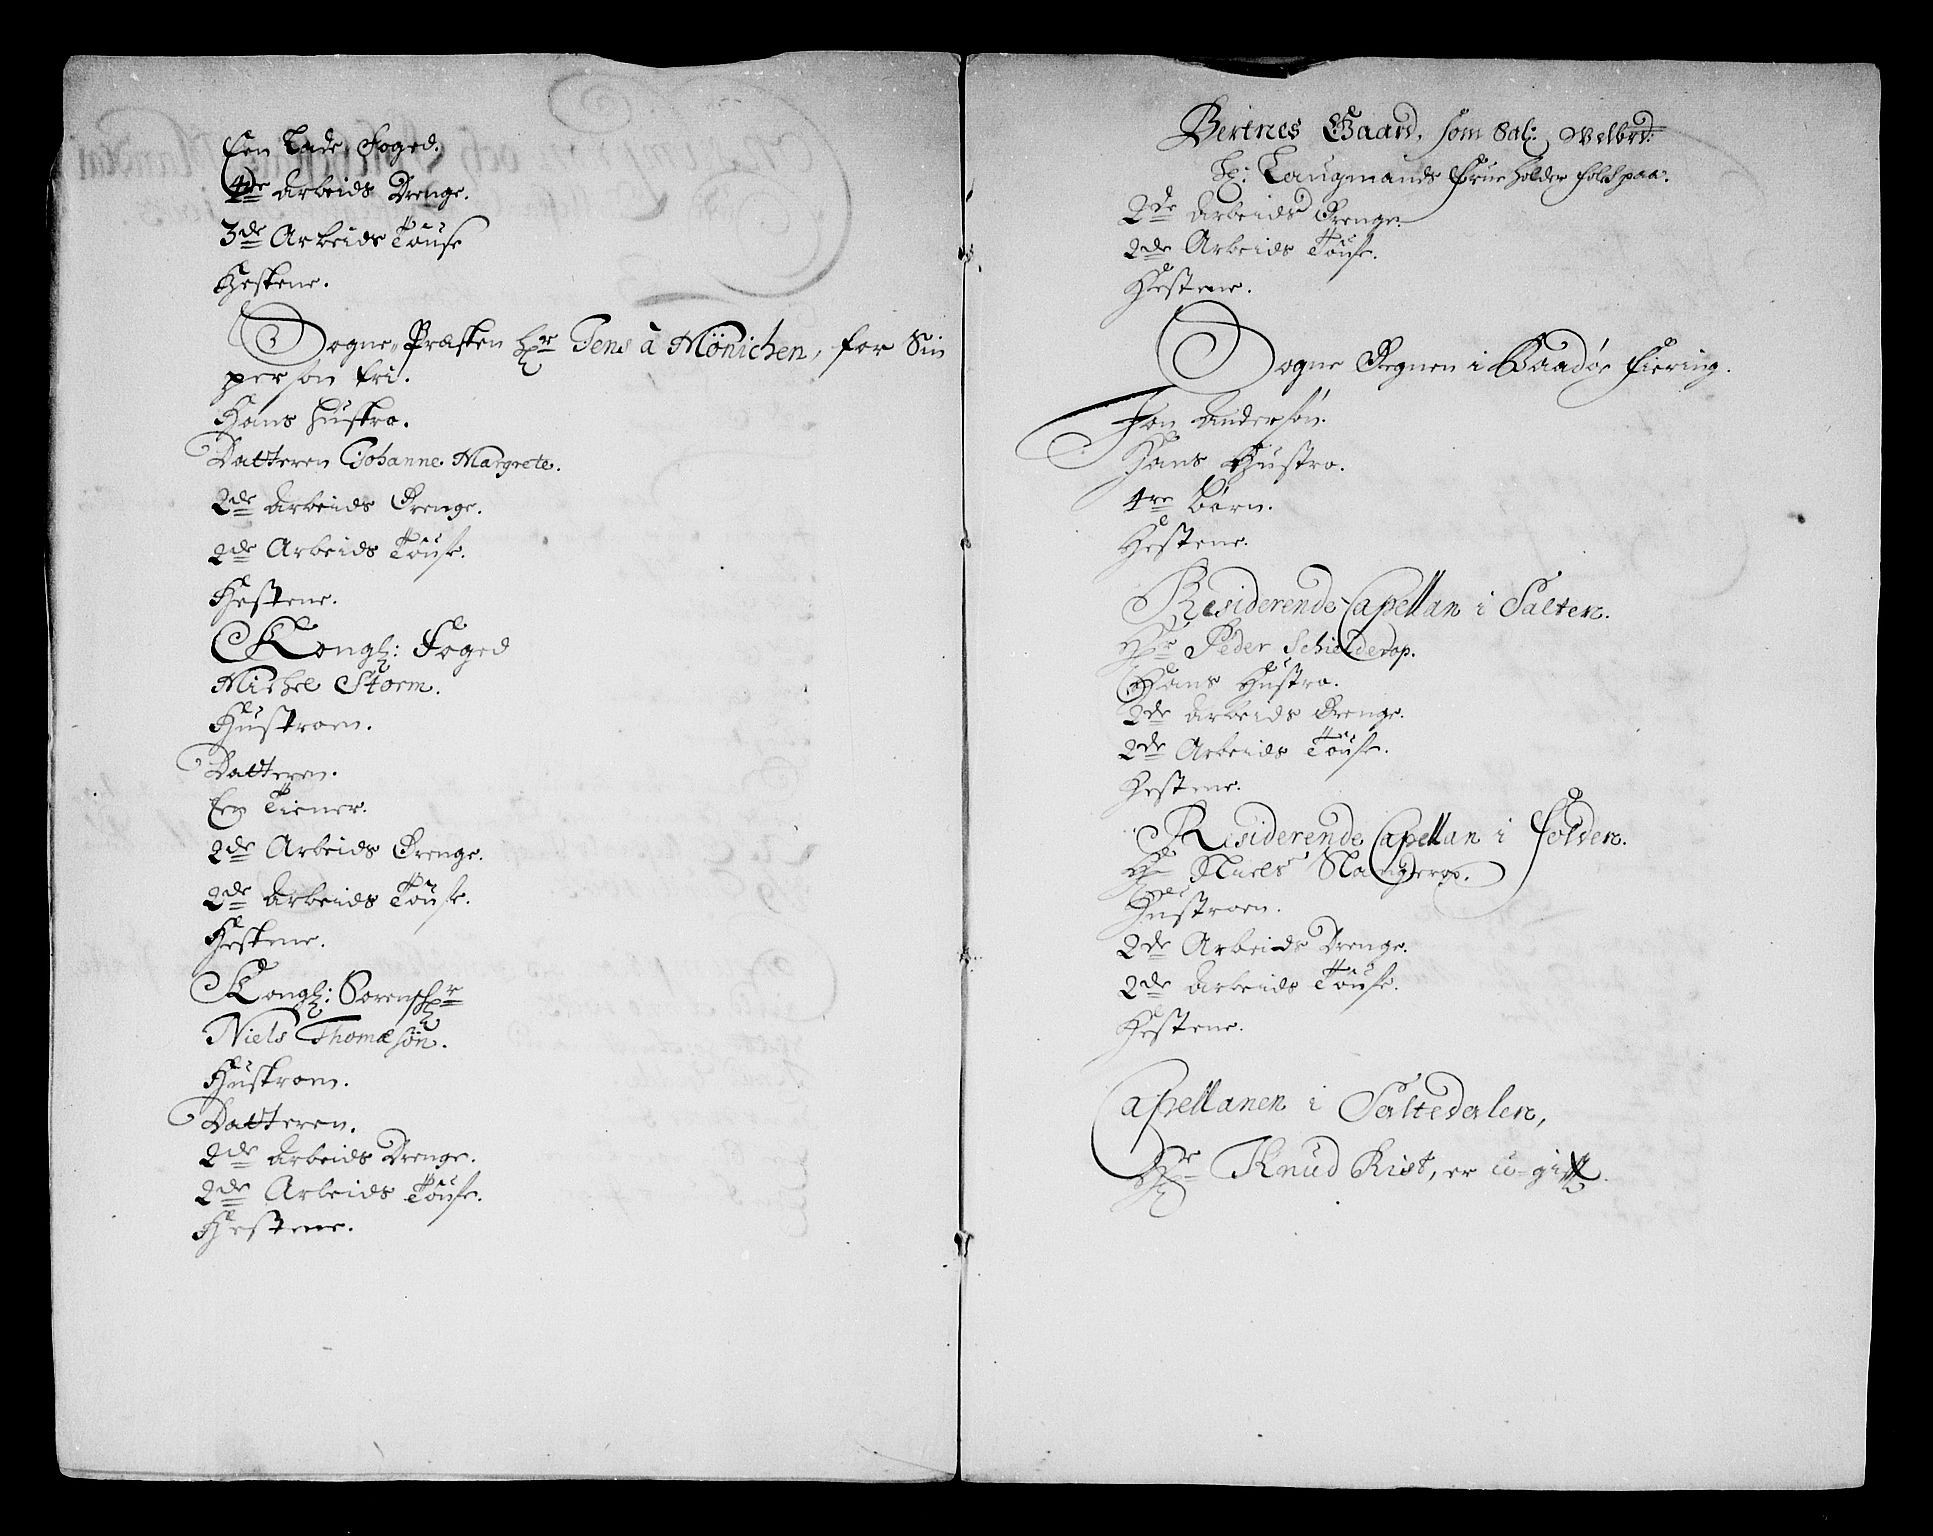 Een Lade Foged.
4de Arbeids Drenge.
3de Arbeids Töuse
Hestene.
Sogne-Præsten Hr Jens à Mönichen, for Sin
person fri.
Hans hustro.
Datteren Johanne Margrete.
2de Arbeids Drenge.
2de Arbeids Töuse.
Hestene.
Kongl: Foged
Michel Storm.
Hustroen.
Datteren.
Een Tiener.
2de Arbeids Drenge.
2de Arbeids Töuse.
Hestene.
Kongl: Sorenskr
Niels Thomæsön.
Hustroen.
Datteren.
2de Arbeids Drenge.
2de Arbeids Töuse.
Hestene.
Bertnes Gaard, som Sal: Velbrd:
Hr: Laugmands Frue holder folch paa.
2de Arbeids Drenge.
2de Arbeids Töuse.
Hestene.
Sogne Degnen i Baadöe fiering.
Jon Andersön.
Hans Hustro.
4re Börn.
Hestene.
Residerende Capellan i Salten.
Hr Peder Schielderop.
Hans Hustro.
2de Arbeids Drenge.
2de Arbeids Töuse.
Hestene.
Residerende Capellan i Folden.
Hr Niels
Hustroen.
2de Arbeids Drenge.
2de Arbeids Töuse.
Hestene.
Capellanen i Saltedalen,
Hr Knud Rist, er u-gift.